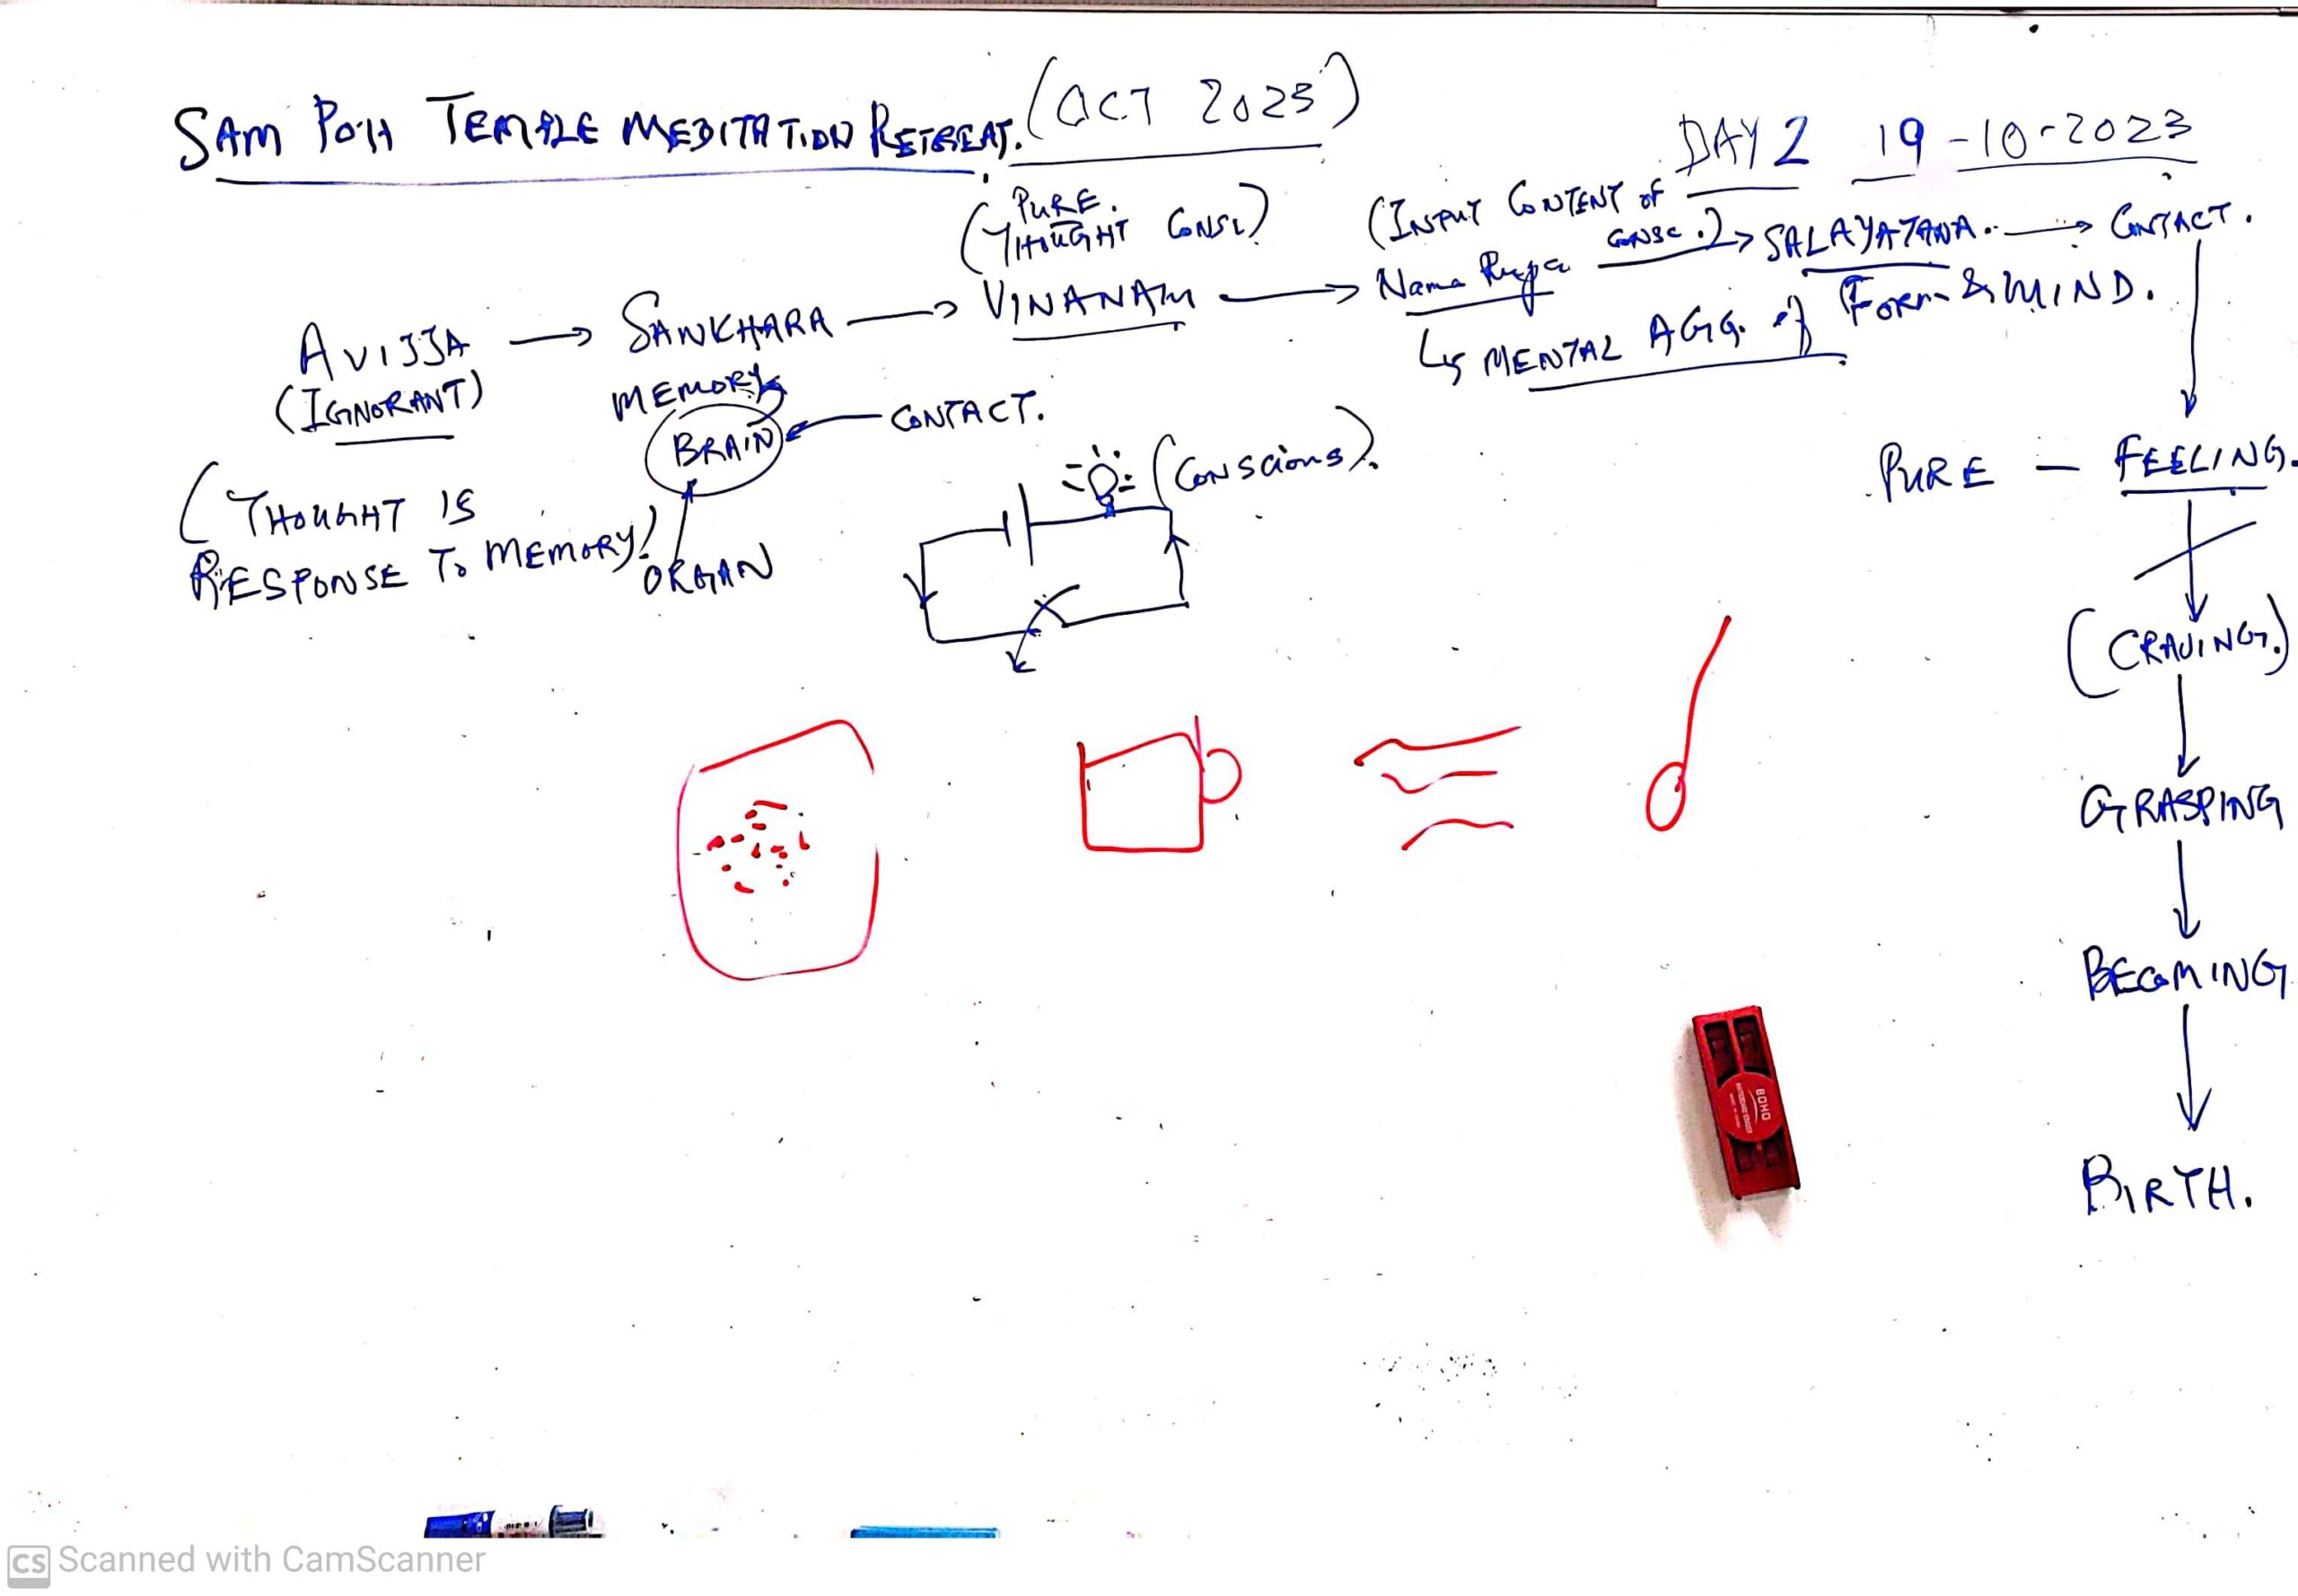 SAM POH TEMPLE MEDITATION RETREAT. (OCT 2023)
DAY 2 19-10-2023
(PURE THOUGHT CONSC)
(INPUT CONTENT of CONSC.)
AVIJJA → SANKHARA → VINANAM → Nama Rupa → SALAYATANA. → CONTACT.
(IGNORANT)
MEMORY
↳ MENTAL AGG. of FORM & MIND.
BRAIN ← CONTACT.
(THOUGHT IS
RESPONSE TO MEMORY)
ORGAN
(Conscious).
PURE — FEELING.
(CRAVING.)
GRASPING
BECOMING
BIRTH.
BOHO
CS Scanned with CamScanner